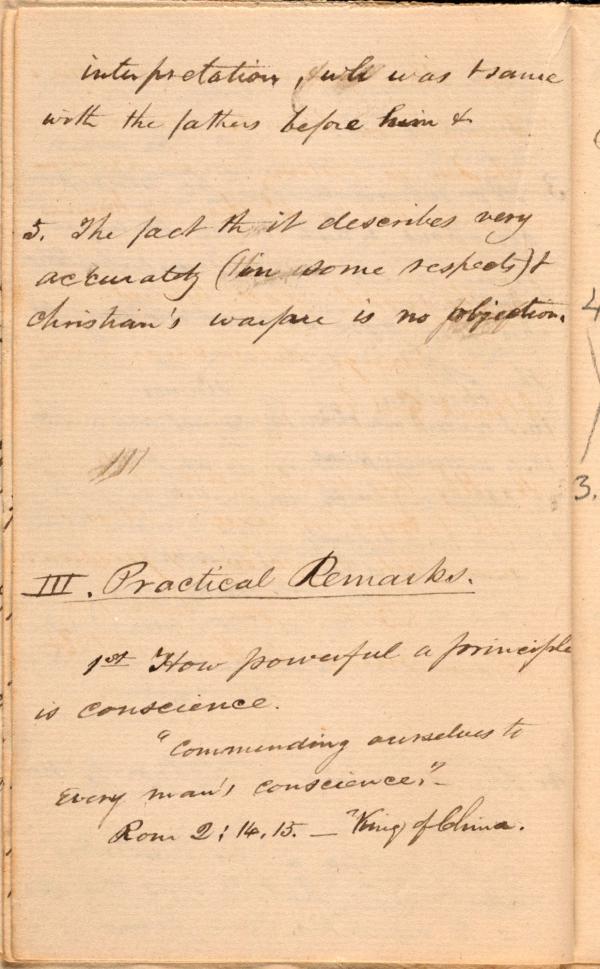 interpretation, wh was t same
with the fathers before him &
5. The fact th it describes very
accurately (in some respects) t
Christian's warfare is no objection.
III. Practical Remarks.
1st How powerful a principle
is conscience.
"Commending ourselves to
Every man's conscience."—
Rom 2:14,15. — "King of China.
4
3.